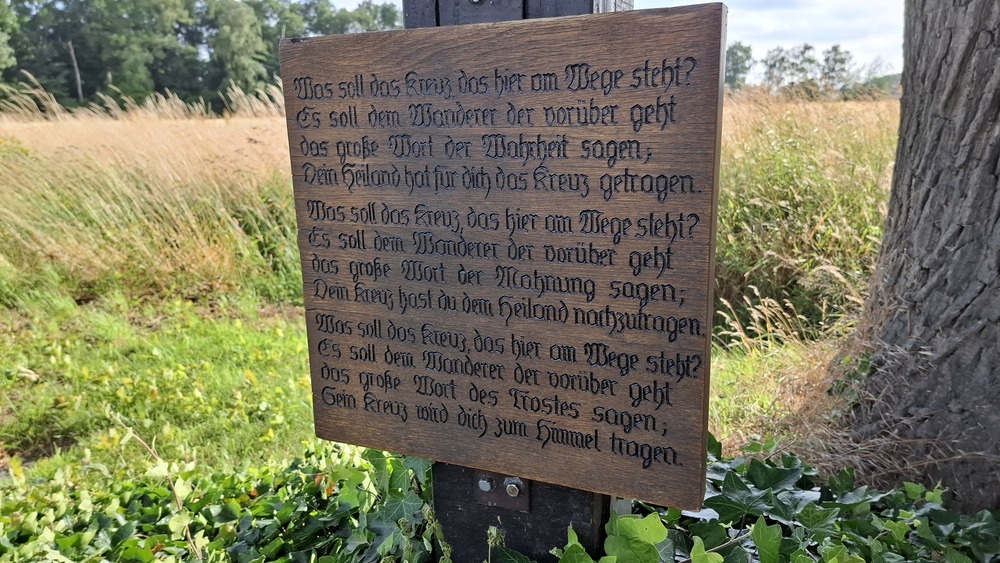 Was soll das Kreuz, das hier am Wege steht?
Es soll dem Wanderer der vorüber geht
das große Wort der Wahrheit sagen;
Dein Heiland hat für dich das Kreuz getragen.
Was soll das Kreuz, das hier am Wege steht?
Es soll dem Wanderer der vorüber geht
das große Wort der Mahnung sagen;
Dein Kreuz hast du dem Heiland nachzutragen.
Was soll das Kreuz, das hier am Wege steht?
Es soll dem Wanderer der vorüber geht
das große Wort des Trostes sagen;
Sein Kreuz wird dich zum Himmel tragen.